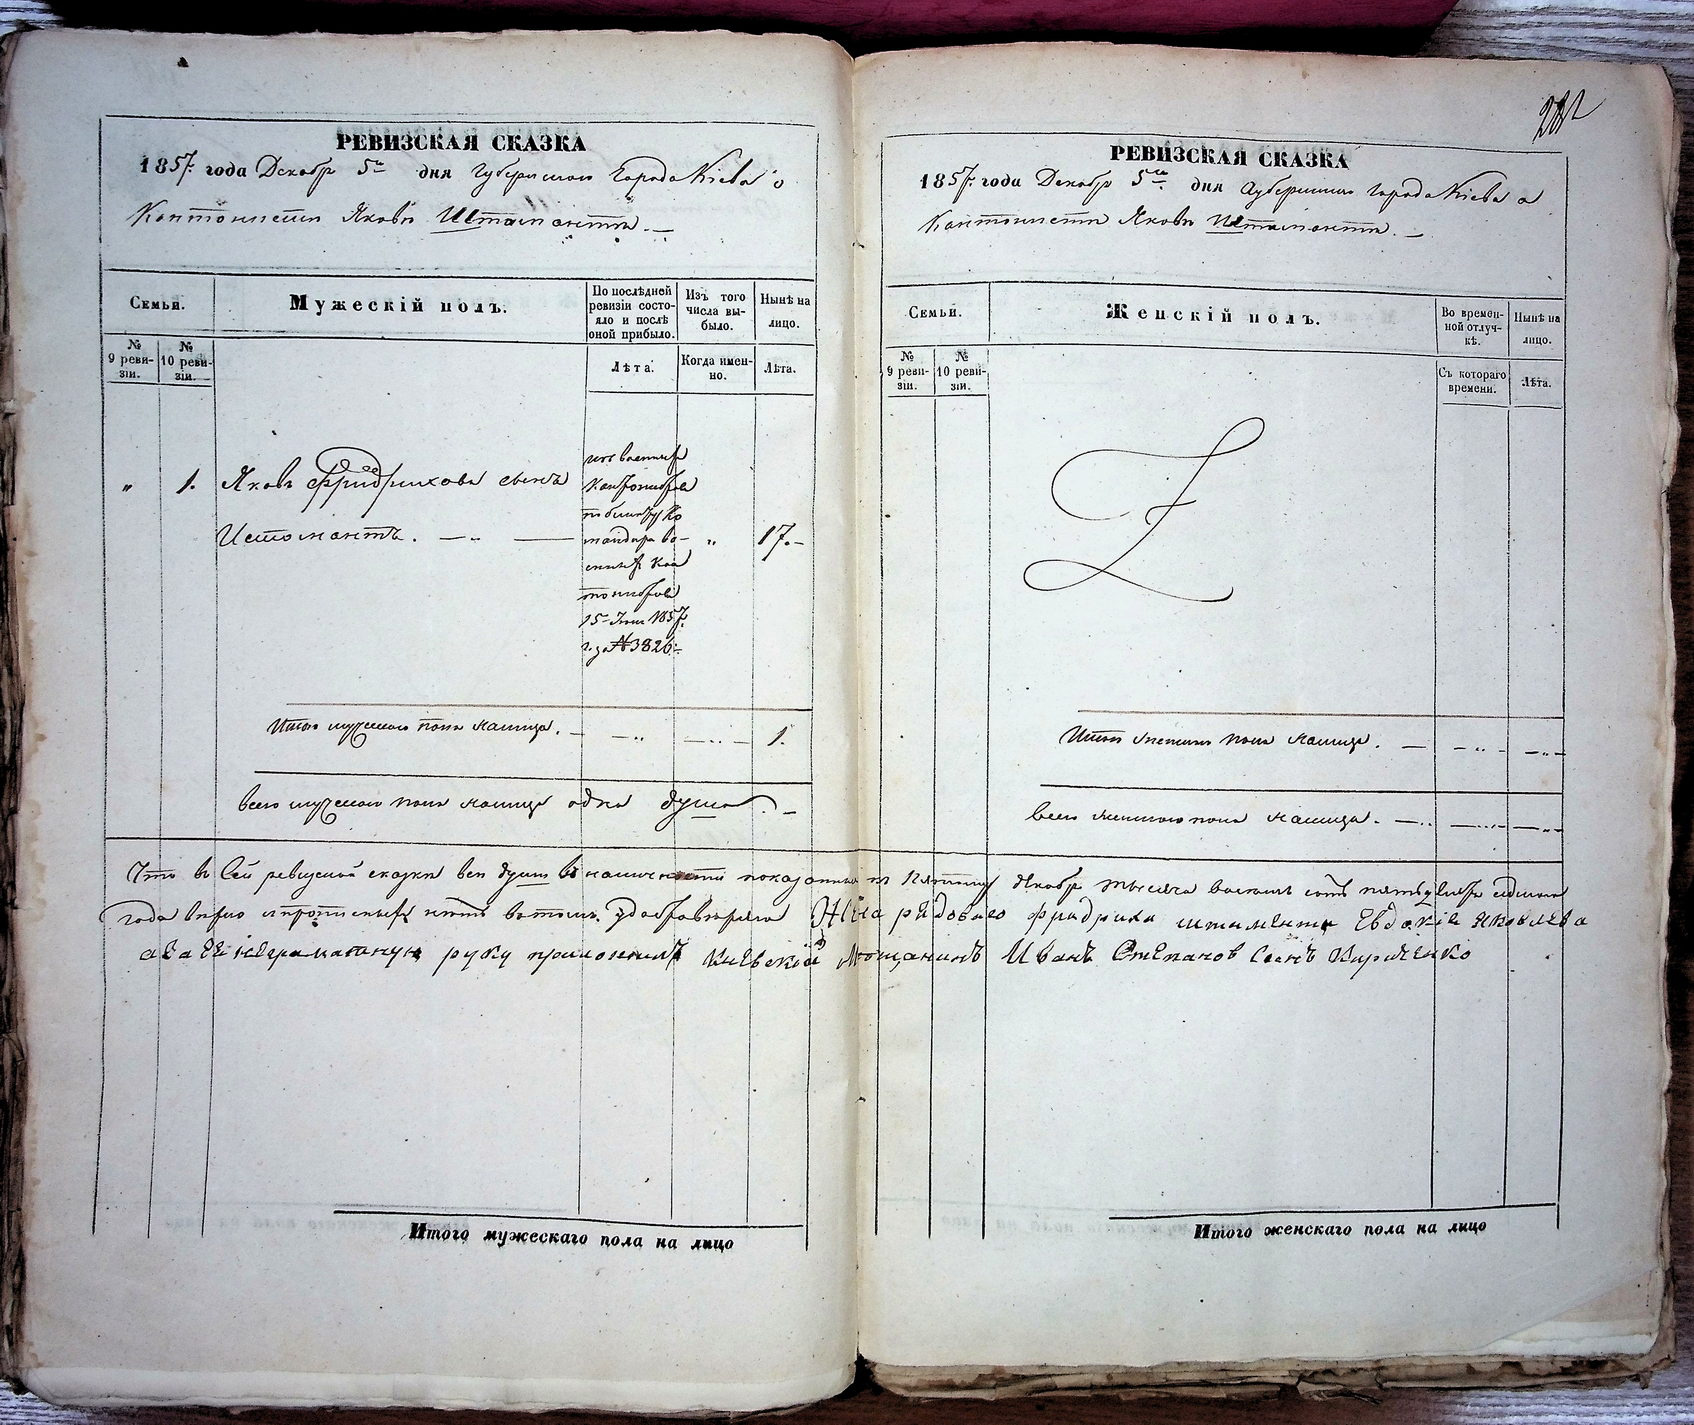 РЕВИЗСКАЯ СКАЗКА
1857 года Декабр 5го дня Губернского Города Кіева о
Кантонистѣ Яковѣ Штаментѣ.
Семьи.
Мужескій полъ.
По послѣдней ревизіи состояло и послѣ оной прибыло.
Изъ того числа выбыло.
Нынѣ на лицо.
№ 9 ревизіи.
№ 10 ревизіи.
Лѣта.
Когда именно.
Лѣта.
„ 1. Яковъ Фридрихова сынъ
„ 17.
изъ военныхъ
Кантонистов
по билету Ко
мандира во-
енных кан
тонистов
15 1857
г. за № 3826
Итого мужеского пола налицо. 1.
Всего мужеского пола налицо одна душа.
РЕВИЗСКАЯ СКАЗКА
1857 года Декабр 5го дня Губернского Города Кіева о
Кантонистѣ Яковѣ Штаментѣ.
Семьи.
Женскій полъ.
Во временной отлучкѣ.
Нынѣ на лицо.
№ 9 ревизіи.
№ 10 ревизіи.
Съ котораго времени.
Лѣта.
Итого женского пола налицо.
Всего женского пола налицо.
Что в сей ревизской сказки все души в наличности показанны Декабр тысяча восемь сотъ пятьдесят седмого
года нетъ в томъ удостоверяю Жена рядового Фридриха Штамента Евдокіе Яковлева
а за Ее неграматную руку приложилъ Киевскій Мещанинъ Иванъ Степанов Сынъ Кириченко
Итого мужескаго пола на лицо
Итого женскаго пола на лицо